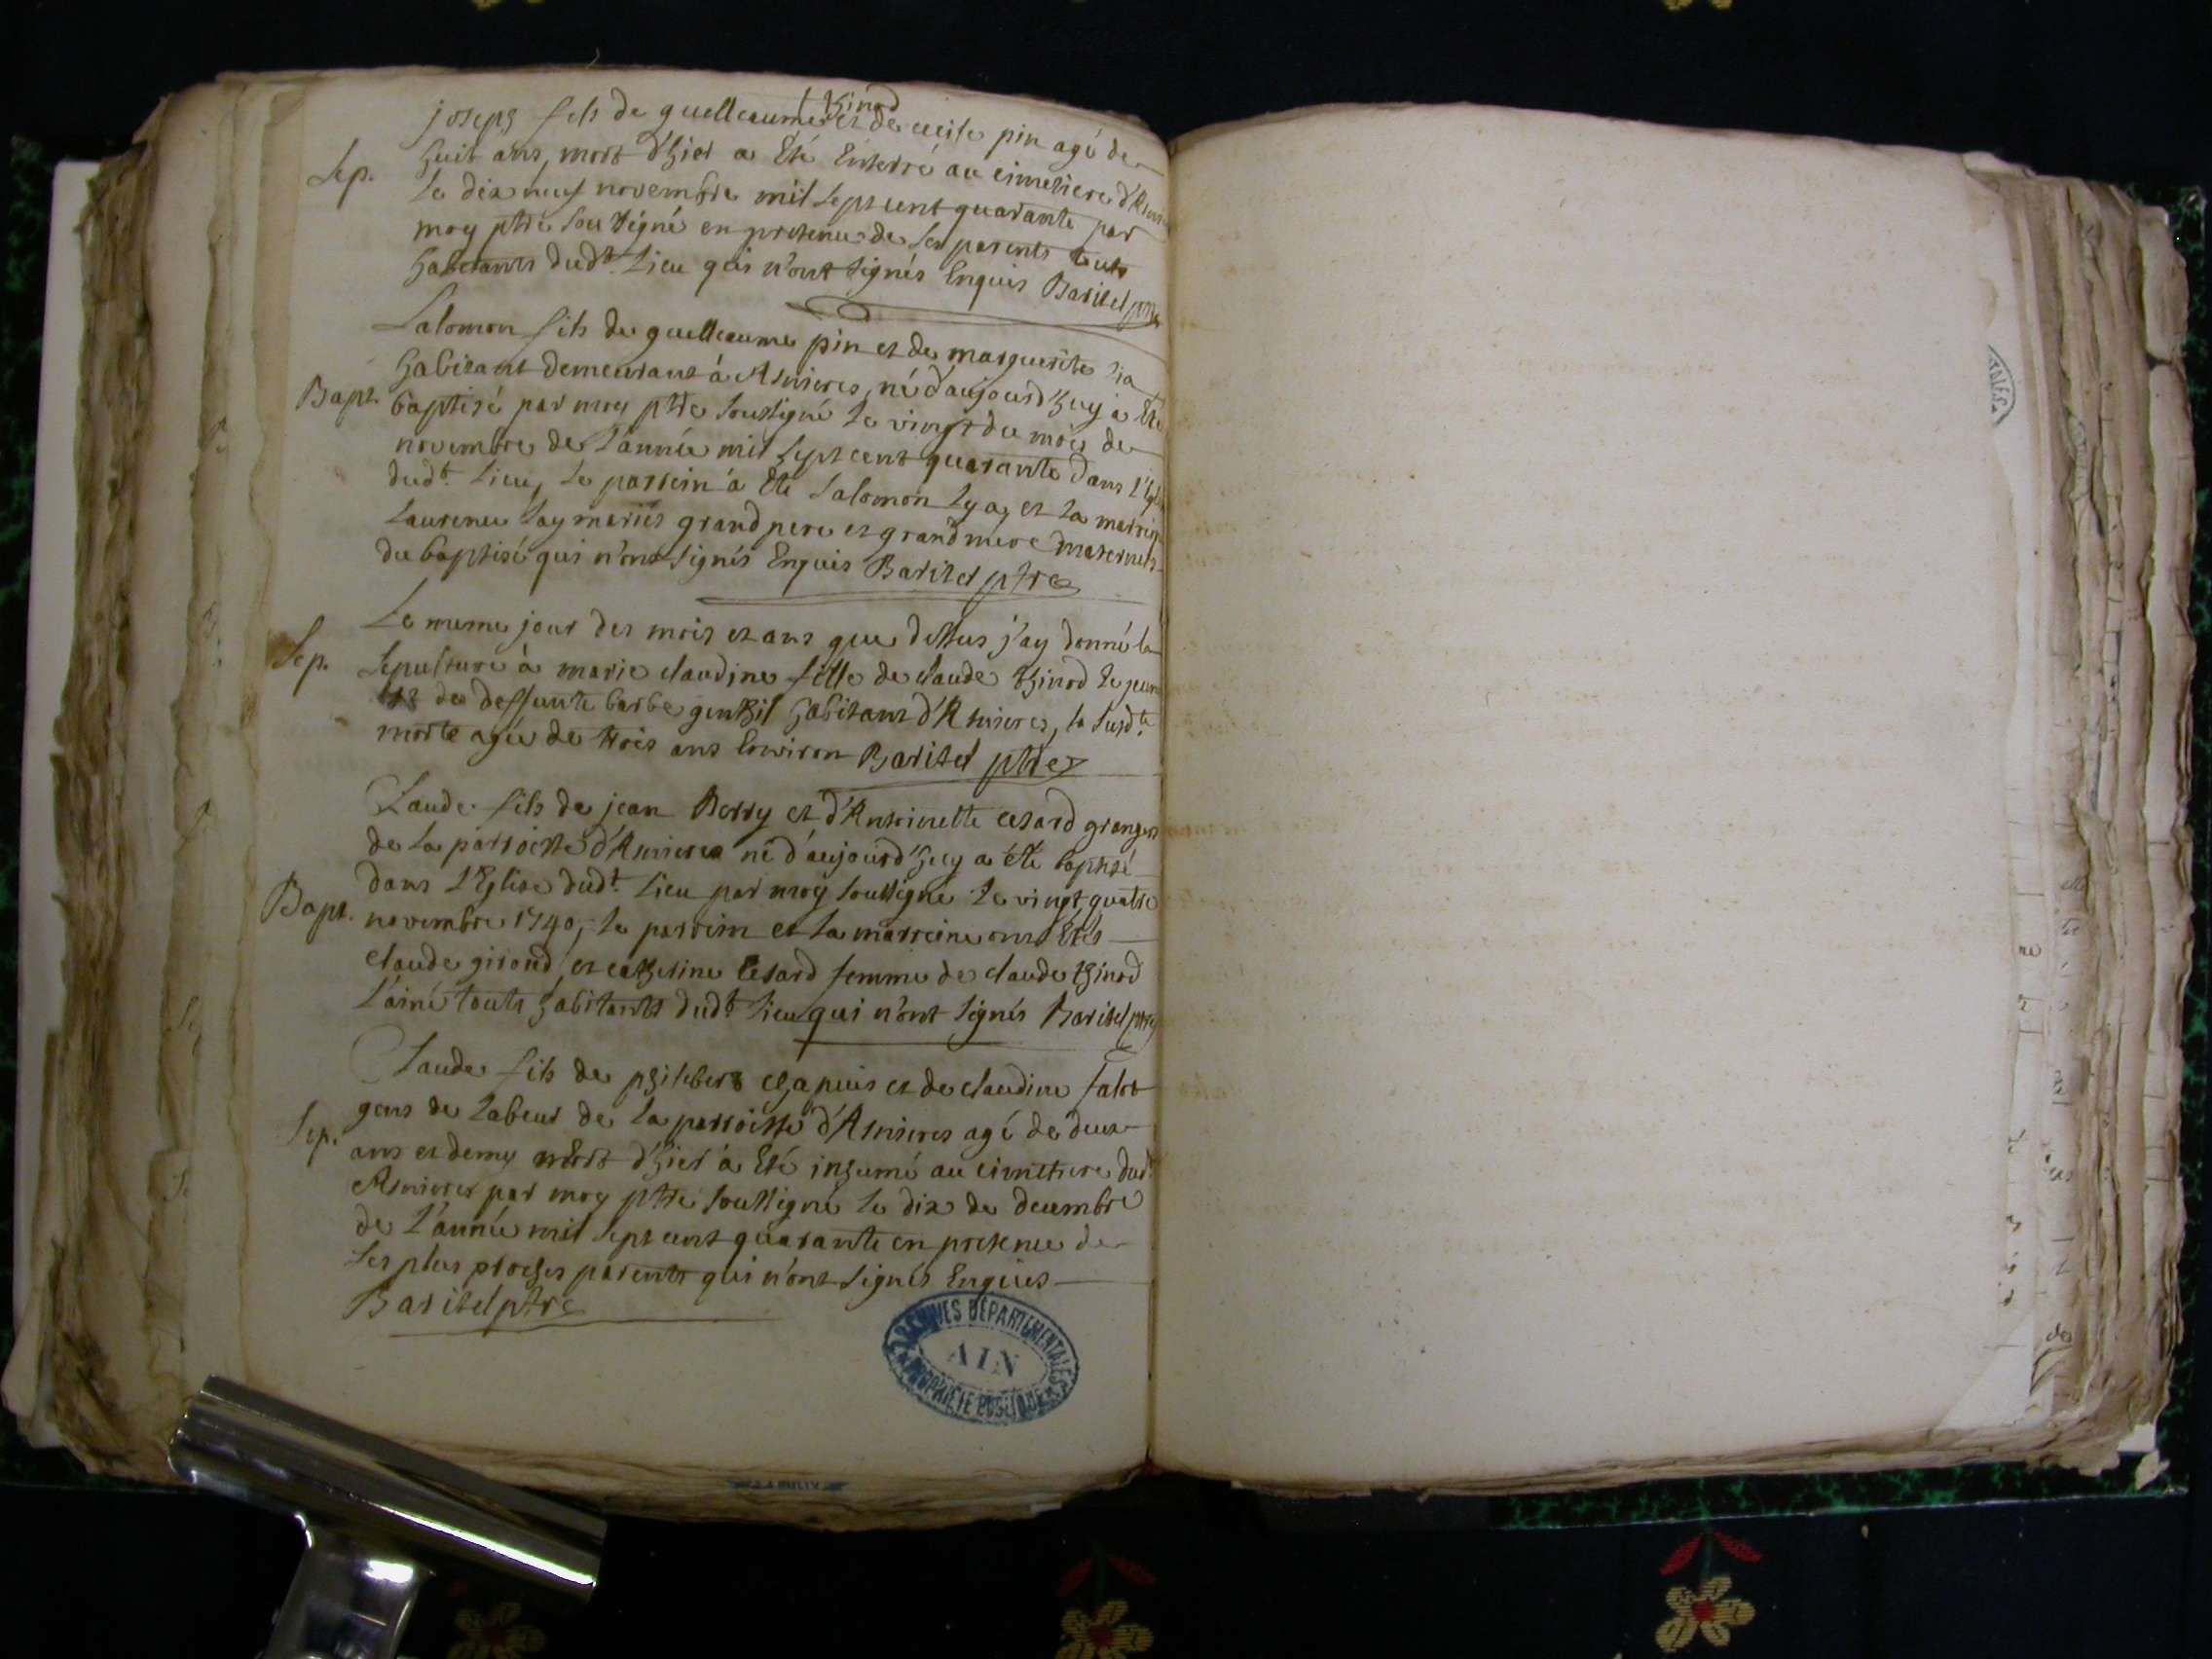 joseph fils de guilleaume thinod et de cecile pin agé de
Sep. huit ans, mort d'hier a Eté Enterré au cimetiere d'Asni
le dix neuf novembre mil sept cent quarante par
moy ptre sou signé en presence de ses parents touts
habitants dud.t lieu qui n'ont signés Enquis Baritel ptre
Salomon fils de guilleaume pin et de marguerite lia
habitant demeurant à Asnieres, né d'aujourd'huy a Eté
Bapt. baptisé par moy ptre soussigné le vingt du mois de
novembre de l'année mil sept cent quarante dans l'Egli
dud.t lieu, le parrein à Eté Salomon lya, et la marrein
laurence lay mariés grand pere et grand mere maternels
du baptisé qui n'ont signés Enquis Baritel ptre
Le meme jour des mois et ans que dessus j'ay donné la
Sep. sepulture à marie claudine fille de claude thinod le jeune
et de deffunte barbe genthil habitant d'Asnieres, la susd.te
morte agée de trois ans Environ Baritel ptre
Claude fils de jean Borry et d'Antoinette cesard grangers
de la parroisse d'Asnieres né d'aujourd'huy a été baptisé
dans l'Eglise dud.t lieu par moy soussigné le vingt quatre
Bapt. novembre 1740, le parrein et la marreine ont Etés
claude giroud et catherine Cesard femme de claude thinod
l'ainé touts habitants dud.t lieu qui n'ont signés Baritel ptre
Claude fils de philibert chapuis et de claudine falot
gens de labeur de la parroisse d'Asnieres agé de deux
Sep. ans et demy mort d'hier à Eté inhumé au cimetiere dud.t
Asnieres par moy ptre soussigné le dix de decembre
de l'année mil sept cent quarante en presence de
ses plus proches parents qui n'ont signés Enquis
Baritel ptre
ARCHIVES DÉPARTEMENTALES
AIN
PROPRIÉTÉ PUBLIQUE